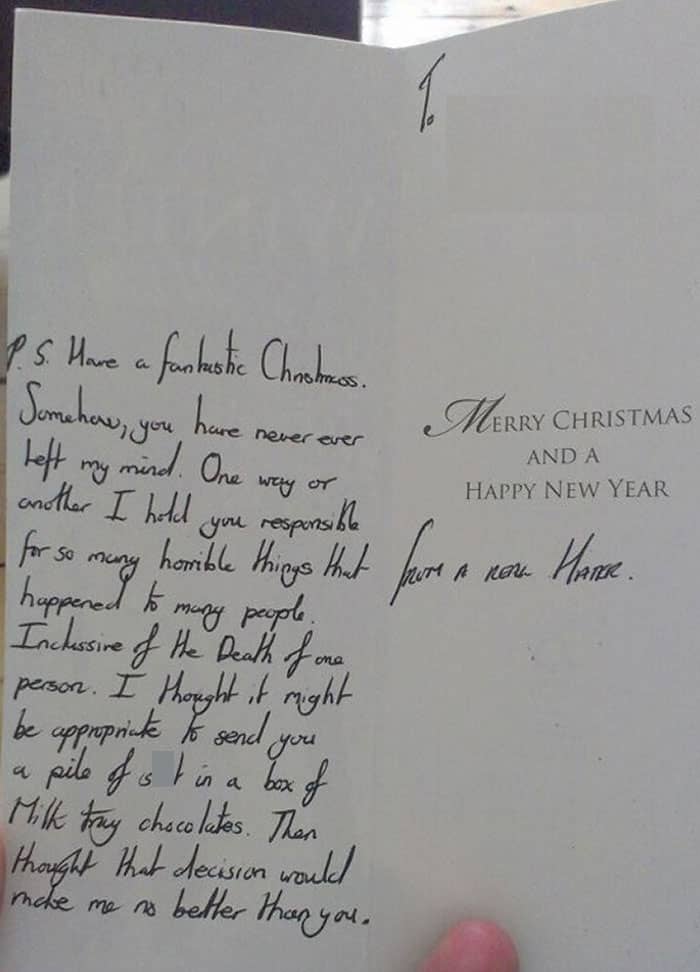 P.S. Have a fantastic Christmass.
Somehow, you have never ever
left my mind. One way or
another I hold you responsible
for so many horrible things that
happened to many people.
Inclussive of the Death of one
person. I thought it might
be appropriate to send you
a pile of s t in a box of
Milk tray chocolates. Then
thought that decision would
make me no better than you.
To
MERRY CHRISTMAS
AND A
HAPPY NEW YEAR
from A REAL HATER.